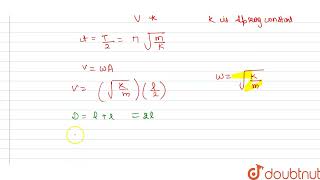 V k k is spring constant
t = T/2 = π √(m/k)
V = WA
V = (√(k/m)) (l/2) W = √(k/m)
D = l + l = 2l
doubtnut